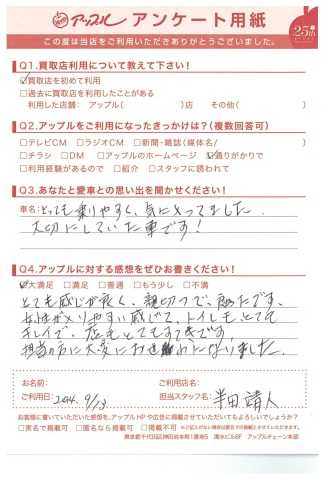 アップル アンケート用紙
25th
この度は当店をご利用いただきありがとうございました。
Q1.買取店利用について教えて下さい!
☑買取店を初めて利用
□過去に買取店を利用したことがある
利用した店舗: アップル( )店 その他( )
Q2.アップルをご利用になったきっかけは?(複数回答可)
□テレビCM □ラジオCM □新聞・雑誌(媒体名/ )
□チラシ □DM □アップルのホームページ ☑通りがかりで
□利用経験があるので □紹介 □スタッフに誘われて
Q3.あなたと愛車との思い出を聞かせてください!
車名: とっても乗りやすく、気に入ってました
大切にしていた車です!
Q4.アップルに対する感想をぜひお書きください!
☑大満足 □満足 □普通 □もう少し □不満
とても感じが良く、親切で、
女性が入りやすい感じで、トイレも、とても
キレイで、店もとてもすてきです。
担当の方に大変にお世話になりました。
お名前: ご利用店名:
ご利用日: 2014. 9/13 担当スタッフ名: 半田 靖人
お客様に書いていただいた感想を、アップルHPや広告に掲載させていただいてもよろしいでしょうか?
□実名で掲載可 □匿名なら掲載可 □掲載不可 ※ご記入がない場合は匿名での掲載とさせていただきます。
東京都千代田区神田岩本町1番地5 清水ビル6F アップルチェーン本部